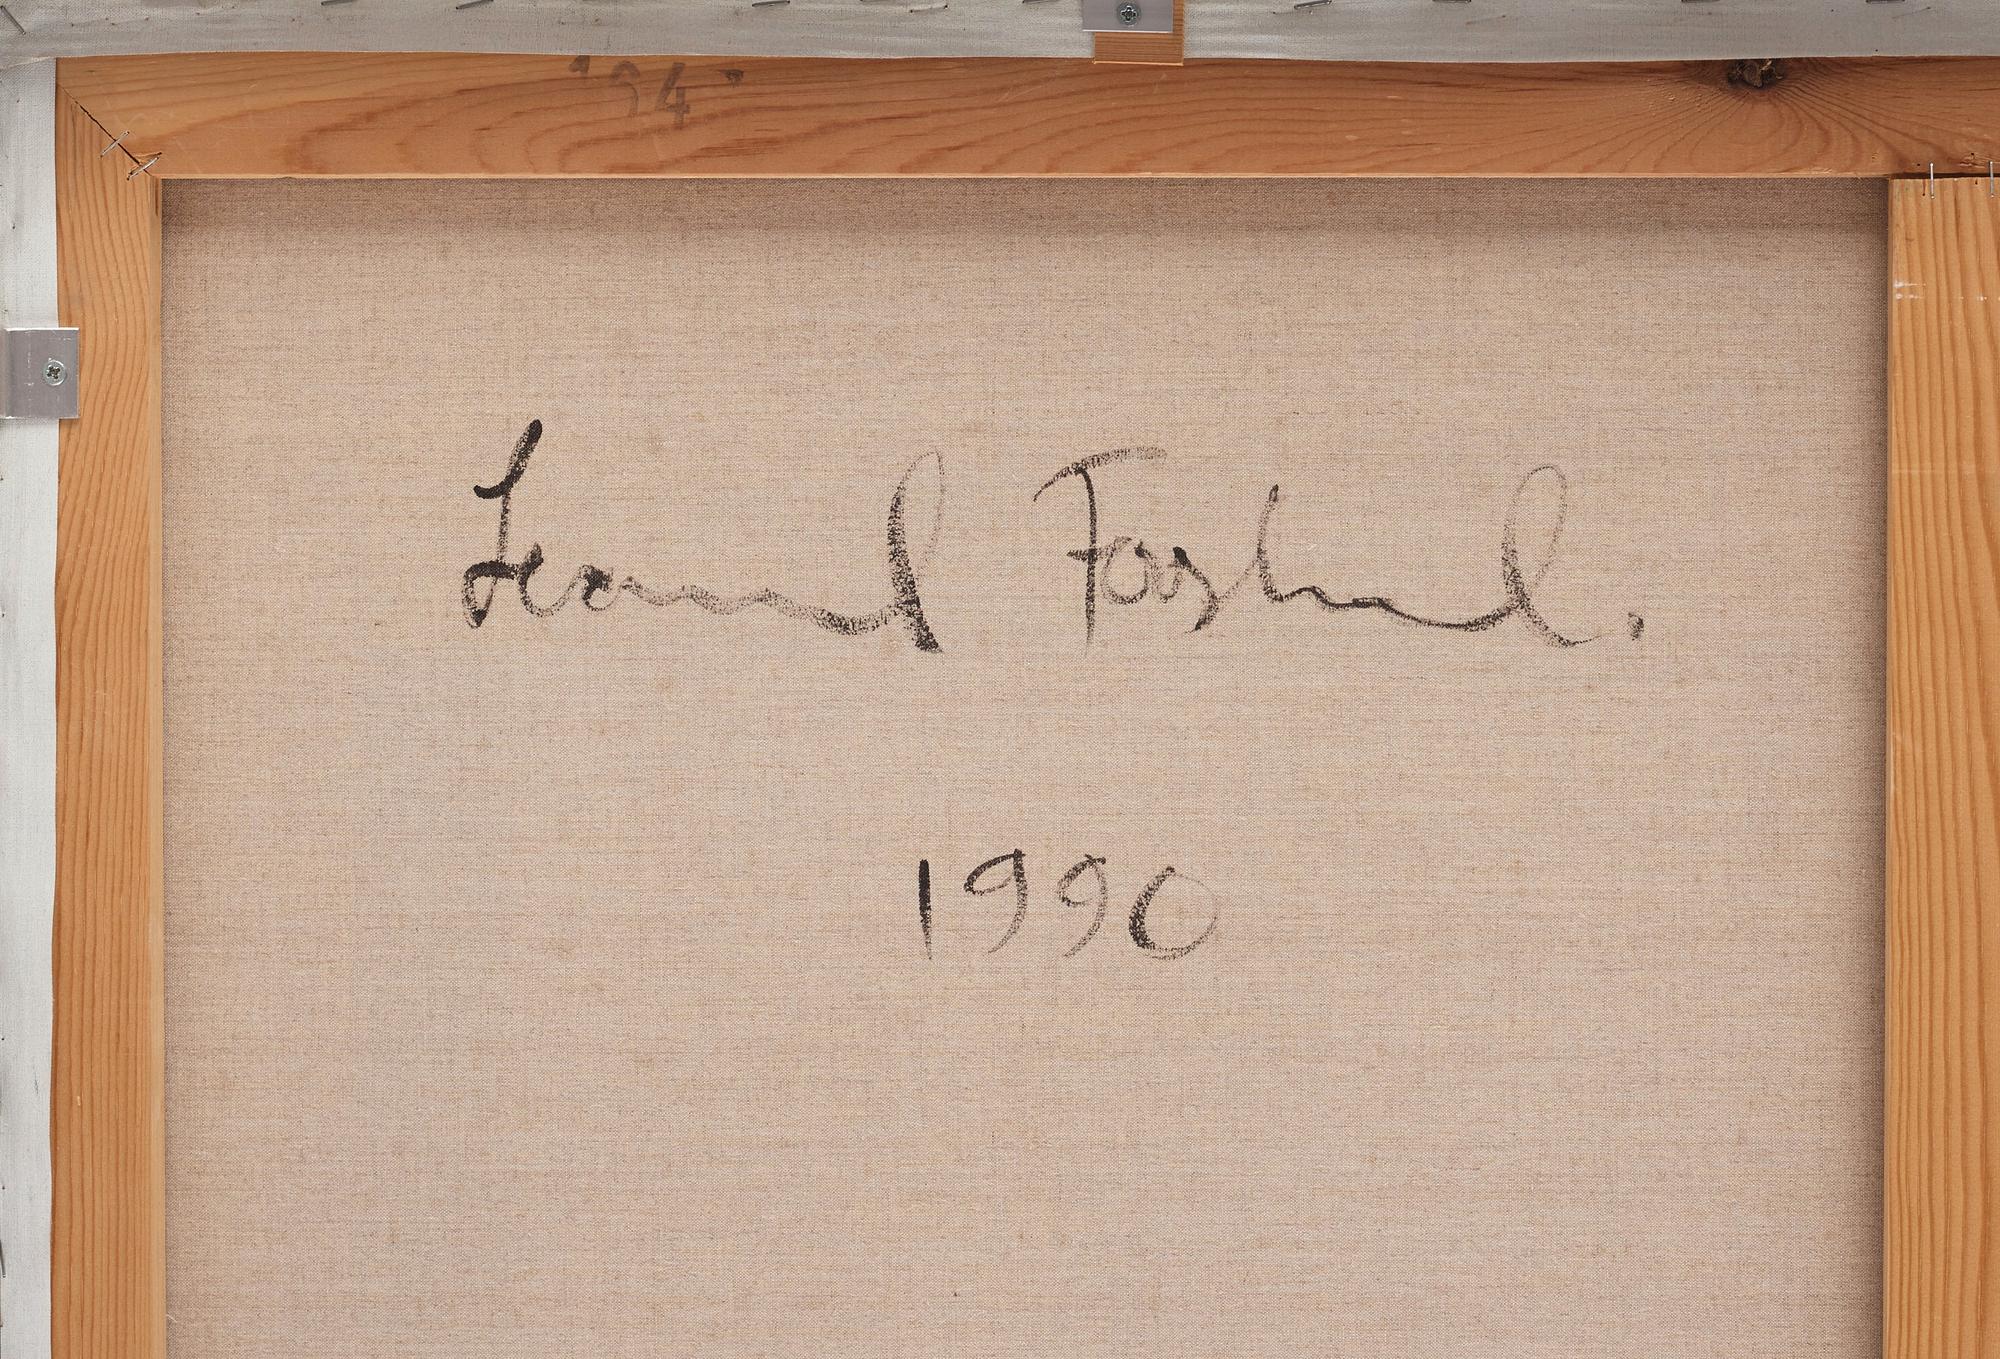 "94"
Leonard Forslund.
1990